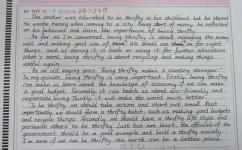 The author was educated to be thrifty in his childhood, but he started
to waste money when coming to a city. Being short of money, he reflected
on his behavior and learn the importance of being thrifty.
As far as I'm concerned, being thrifty is about managing the money
well and making good use of them. We should use them on the right
things, such as saving it in bank or using it for further education.
What's more, being thrifty is about recycling and making things
useful again.
As an old saying goes, "Being thrifty makes a country stronger".
In my opinion, being thrifty is very important. Firstly, being thrifty
can make us learn about the knowledge of economy if we need
a good budget. Secondly, it can teach us about eco-friendly and
responsible living. Thirdly, it will make the world much better.
To be thrifty, we should take action and start small. First
important, we should form a thrifty habit, such as making good budgets
and recycle things. Secondly, we should have a thrifty life style and
persuade others to be thrifty. Last but not least, the officials of the
government should be a good example and build a thrifty society.
If all of us can be thrifty, the world can be a better place.